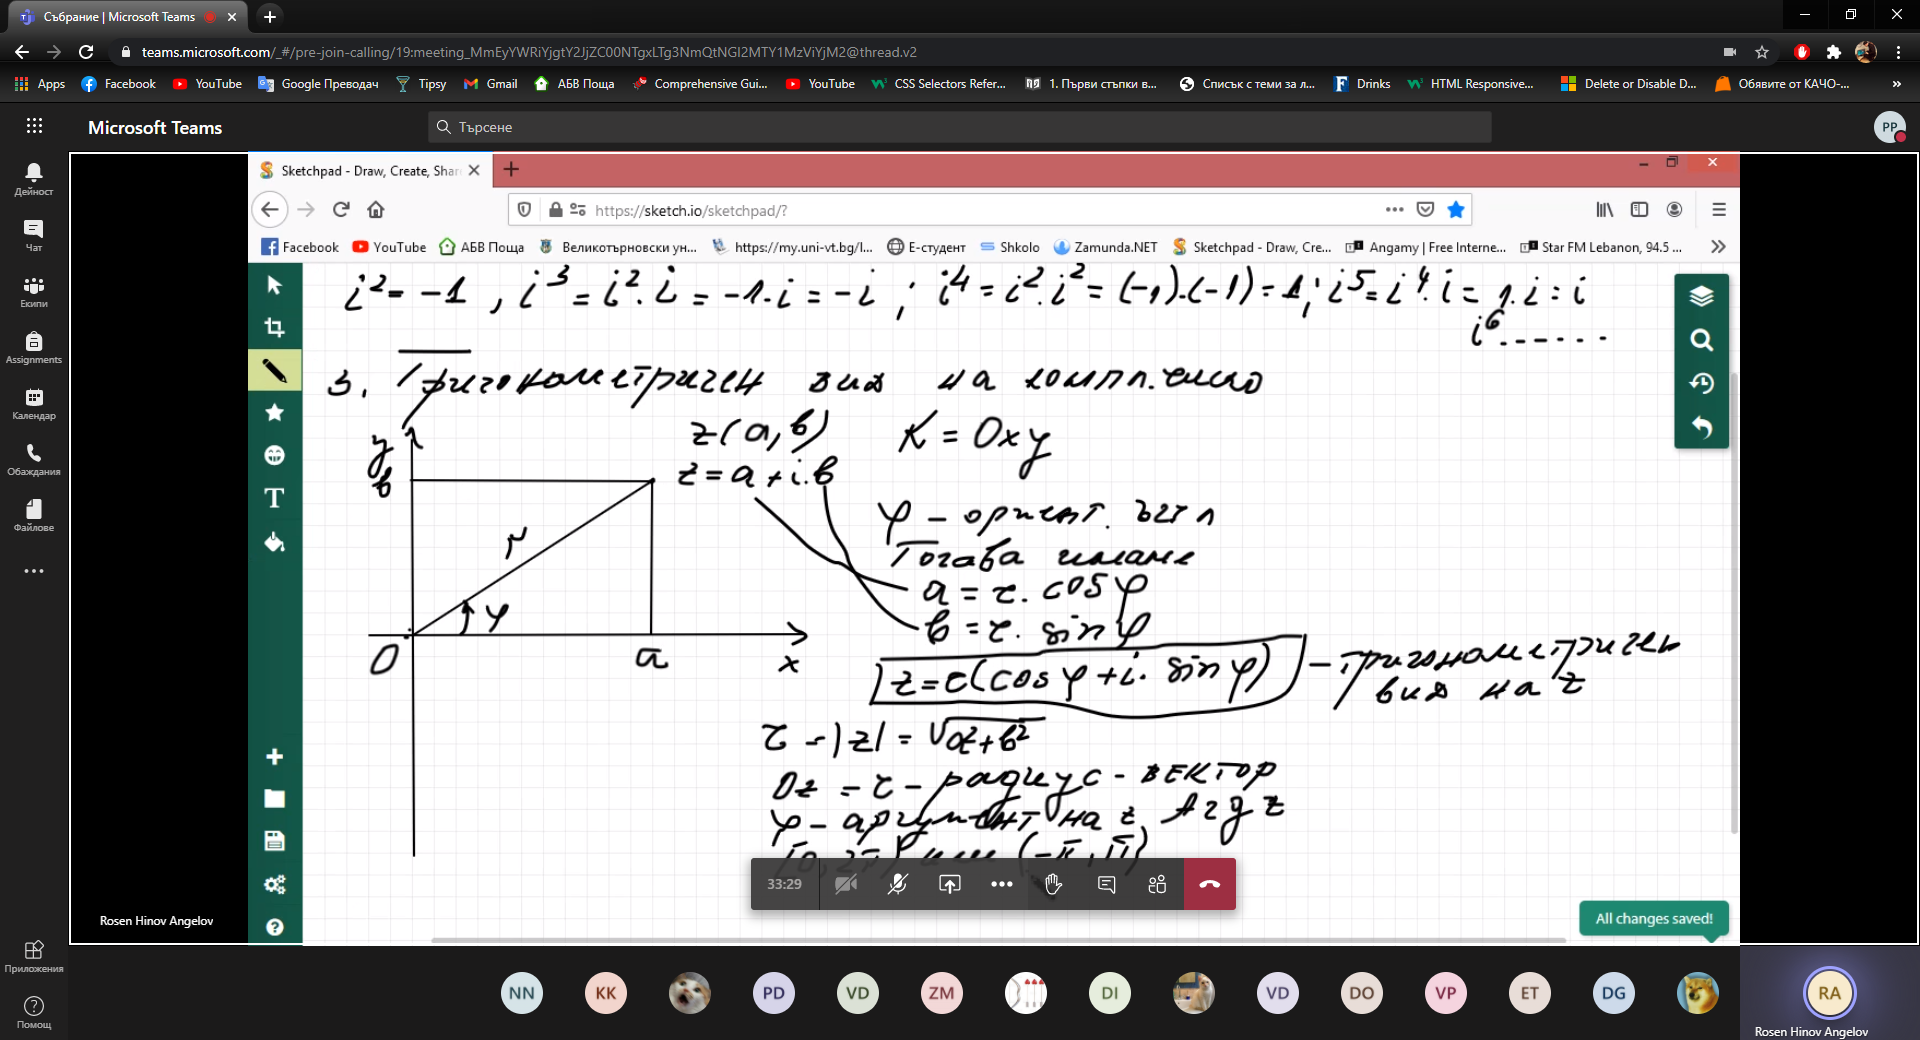 Събрание | Microsoft Teams
teams.microsoft.com/_#/pre-join-calling/19:meeting_MmEyYWRiYjgtY2JjZC00NTgxLTg3NmQtNGI2MTY1MzViYjM2@thread.v2
Apps Facebook YouTube Google Преводач Tipsy Gmail АБВ Поща Comprehensive Gui... YouTube CSS Selectors Refer... 1. Първи стъпки в... Списък с теми за л... Drinks HTML Responsive... Delete or Disable D... Обявите от КАЧО-...
Microsoft Teams
Търсене
PP
Дейност
Чат
Екипи
Assignments
Календар
Обаждания
Файлове
Приложения
Помощ
Sketchpad - Draw, Create, Shar
https://sketch.io/sketchpad/?
Facebook YouTube АБВ Поща Великотърновски ун... https://my.uni-vt.bg/I... Е-студент Shkolo Zamunda.NET Sketchpad - Draw, Cre... Angamy | Free Interne... Star FM Lebanon, 94.5 ...
i² = -1 , i³ = i². i = -1. i = -i ; i⁴ = i². i² = (-1).(-1) = 1; i⁵ = i⁴. i = 1. i = i
i⁶.......
3. Тригонометричен вид на компл. число
y
в
r
φ
O
a
x
z(a, в) K = Oxy
z = a + i.в
φ - ориент. ъгъл
Тогава имаме
a = r. cos φ
в = r. sin φ
z = r(cos φ + i. sin φ) - тригонометричен
вид на z
r - |z| = √a²+в²
Oz = r - радиус - вектор
φ - аргумент на z, Arg z
[0, 2π) или (-π, π]
33:29
All changes saved!
Rosen Hinov Angelov
NN KK PD VD ZM DI VD DO VP ET DG RA
Rosen Hinov Angelov